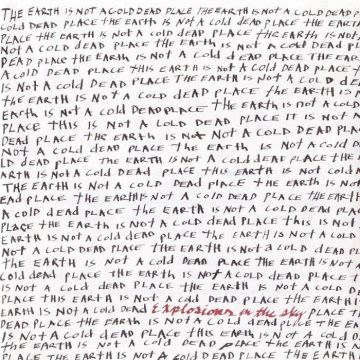 THE EARTH IS NOT A COLD DEAD PLACE THE EARTH IS NOT A COLD DEAD
COLD DEAD PLACE THE EARTH IS NOT A COLD DEAD PLACE THE EARTH
PLACE THE EARTH IS NOT A COLD DEAD PLACE THE EARTH IS
NOT A COLD DEAD PLACE THE EARTH IS NOT A COLD DEAD
DEAD PLACE THE EARTH IS NOT A COLD DEAD PLACE THE EARTH
A COLD DEAD PLACE THIS EARTH IS NOT A COLD DEAD PLACE
IS NOT A COLD DEAD PLACE THE EARTH IS NOT A COLD
THE EARTH IS NOT A COLD DEAD PLACE THE EARTH IS
EARTH IS NOT A COLD DEAD PLACE THE EARTH IS NOT A COLD
PLACE THIS IS NOT A COLD DEAD PLACE IT IS NOT A
DEAD PLACE THE EARTH IS NOT A COLD DEAD PLACE
NOT A COLD DEAD PLACE THE EARTH IS NOT A COLD DEAD
DEAD PLACE THE EARTH IS NOT A COLD DEAD PLACE THE
EARTH IS NOT A COLD DEAD PLACE THIS EARTH IS NOT COLD
THE EARTH IS NOT A COLD DEAD PLACE THE EARTH IS NOT A
DEAD PLACE THE EARTH IS NOT A COLD DEAD PLACE THE EARTH
A COLD DEAD PLACE THE EARTH IS NOT A COLD DEAD PLACE
PLACE THE EARTH IS NOT A COLD DEAD PLACE THIS IS NOT
EARTH IS NOT A COLD DEAD PLACE THE EARTH IS NOT A COLD
NOT A COLD DEAD PLACE THE EARTH IS NOT A COLD DEAD
THE EARTH IS NOT A COLD DEAD PLACE THE EARTH IS NOT
COLD DEAD PLACE THE EARTH IS NOT A COLD DEAD PLACE THE
IS NOT A COLD DEAD PLACE THE EARTH IS NOT A COLD DEAD
PLACE THIS EARTH IS NOT A COLD DEAD PLACE THE EARTH
EARTH IS NOT A COLD DEAD Explosions in the sky PLACE THE
DEAD PLACE THE EARTH IS NOT A COLD DEAD PLACE THE EARTH
IS NOT A COLD DEAD PLACE THIS EARTH IS NOT A COLD
THE EARTH IS NOT A COLD DEAD PLACE THE EARTH IS NOT
A COLD DEAD PLACE THE EARTH IS NOT A COLD DEAD PLACE